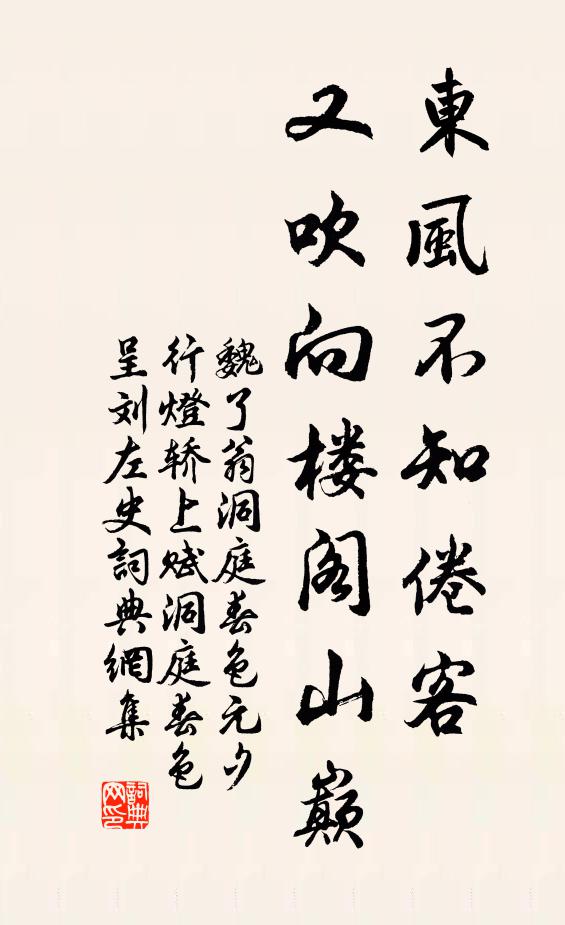 東風不知倦客
又吹向楼阁山巅
魏了翁洞庭春色元夕
行燈轿上赋洞庭春色
呈刘左史詞典網集
詞典
网印